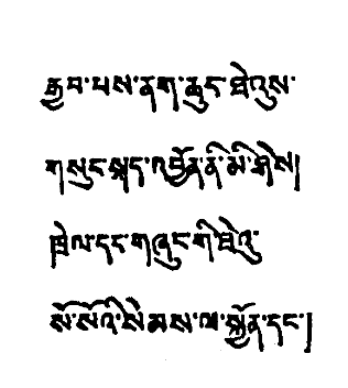 རྒྱབ་པས་ནག་ཆུང་ཐེའུས་
གསུང་སྐད་འབྱོན་ནི་མི་ཤེས།
ཁྲེལ་དང་གཞུང་གི་ཐེའུ་
སོ་སོའི་སེམས་ལ་སྐྱོན་དང་།